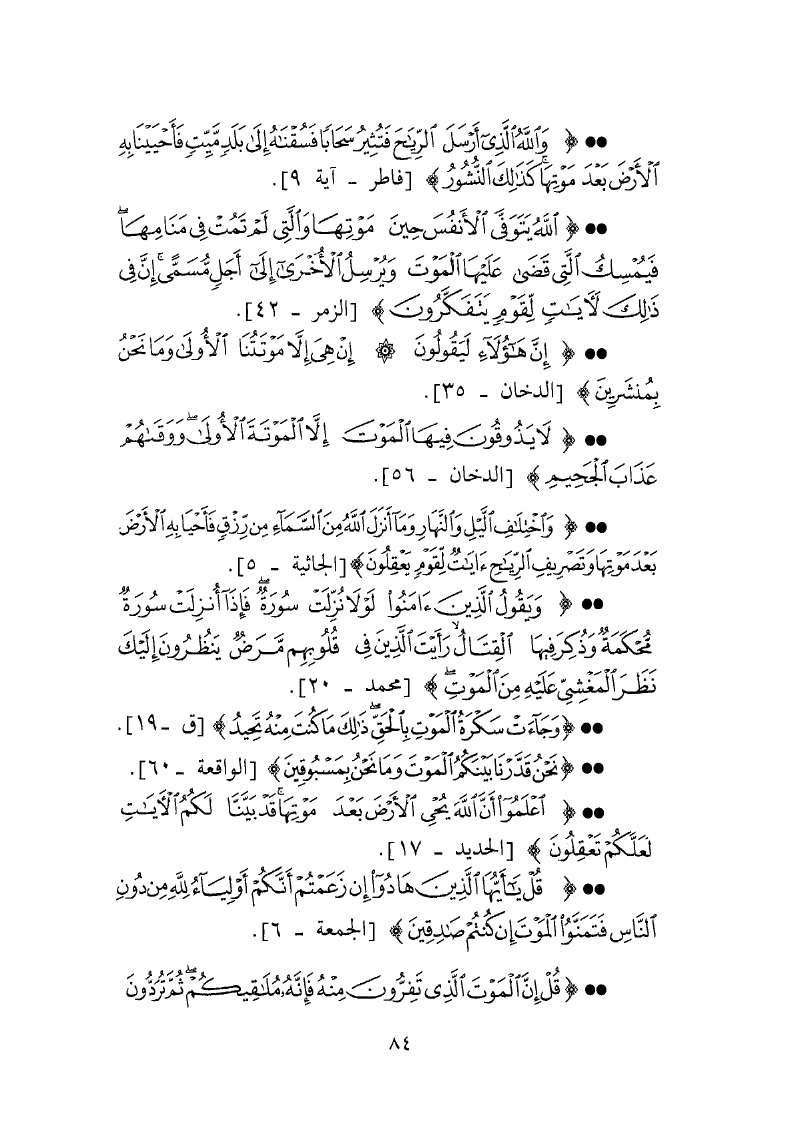 ●● ﴿ وَٱللَّهُ ٱلَّذِىٓ أَرْسَلَ ٱلرِّيَٰحَ فَتُثِيرُ سَحَابًا فَسُقْنَٰهُ إِلَىٰ بَلَدٍ مَّيِّتٍ فَأَحْيَيْنَا بِهِ
ٱلْأَرْضَ بَعْدَ مَوْتِهَا ۚ كَذَٰلِكَ ٱلنُّشُورُ ﴾ [فاطر ـ آية ٩].
●● ﴿ ٱللَّهُ يَتَوَفَّى ٱلْأَنفُسَ حِينَ مَوْتِهَا وَٱلَّتِى لَمْ تَمُتْ فِى مَنَامِهَا ۖ
فَيُمْسِكُ ٱلَّتِى قَضَىٰ عَلَيْهَا ٱلْمَوْتَ وَيُرْسِلُ ٱلْأُخْرَىٰٓ إِلَىٰٓ أَجَلٍ مُّسَمًّى ۚ إِنَّ فِى
ذَٰلِكَ لَآيَٰتٍ لِّقَوْمٍ يَتَفَكَّرُونَ ﴾ [الزمر ـ ٤٢].
●● ﴿ إِنَّ هَٰٓؤُلَآءِ لَيَقُولُونَ ۞ إِنْ هِىَ إِلَّا مَوْتَتُنَا ٱلْأُولَىٰ وَمَا نَحْنُ
بِمُنشَرِينَ ﴾ [الدخان ـ ٣٥].
●● ﴿ لَا يَذُوقُونَ فِيهَا ٱلْمَوْتَ إِلَّا ٱلْمَوْتَةَ ٱلْأُولَىٰ ۖ وَوَقَىٰهُمْ
عَذَابَ ٱلْجَحِيمِ ﴾ [الدخان ـ ٥٦].
●● ﴿ وَٱخْتِلَٰفِ ٱلَّيْلِ وَٱلنَّهَارِ وَمَآ أَنزَلَ ٱللَّهُ مِنَ ٱلسَّمَآءِ مِن رِّزْقٍ فَأَحْيَا بِهِ ٱلْأَرْضَ
بَعْدَ مَوْتِهَا وَتَصْرِيفِ ٱلرِّيَٰحِ ءَايَٰتٌ لِّقَوْمٍ يَعْقِلُونَ ﴾ [الجاثية ـ ٥].
●● ﴿ وَيَقُولُ ٱلَّذِينَ ءَامَنُوا۟ لَوْلَا نُزِّلَتْ سُورَةٌ ۖ فَإِذَآ أُنزِلَتْ سُورَةٌ
مُّحْكَمَةٌ وَذُكِرَ فِيهَا ٱلْقِتَالُ ۙ رَأَيْتَ ٱلَّذِينَ فِى قُلُوبِهِم مَّرَضٌ يَنظُرُونَ إِلَيْكَ
نَظَرَ ٱلْمَغْشِىِّ عَلَيْهِ مِنَ ٱلْمَوْتِ ۖ ﴾ [محمد ـ ٢٠].
●● ﴿ وَجَآءَتْ سَكْرَةُ ٱلْمَوْتِ بِٱلْحَقِّ ۖ ذَٰلِكَ مَا كُنتَ مِنْهُ تَحِيدُ ﴾ [ق ـ ١٩].
●● ﴿ نَحْنُ قَدَّرْنَا بَيْنَكُمُ ٱلْمَوْتَ وَمَا نَحْنُ بِمَسْبُوقِينَ ﴾ [الواقعة ـ ٦٠].
●● ﴿ ٱعْلَمُوٓا۟ أَنَّ ٱللَّهَ يُحْىِ ٱلْأَرْضَ بَعْدَ مَوْتِهَا ۚ قَدْ بَيَّنَّا لَكُمُ ٱلْآيَٰتِ
لَعَلَّكُمْ تَعْقِلُونَ ﴾ [الحديد ـ ١٧].
●● ﴿ قُلْ يَٰٓأَيُّهَا ٱلَّذِينَ هَادُوٓا۟ إِن زَعَمْتُمْ أَنَّكُمْ أَوْلِيَآءُ لِلَّهِ مِن دُونِ
ٱلنَّاسِ فَتَمَنَّوُا۟ ٱلْمَوْتَ إِن كُنتُمْ صَٰدِقِينَ ﴾ [الجمعة ـ ٦].
●● ﴿ قُلْ إِنَّ ٱلْمَوْتَ ٱلَّذِى تَفِرُّونَ مِنْهُ فَإِنَّهُۥ مُلَٰقِيكُمْ ۖ ثُمَّ تُرَدُّونَ
٨٤